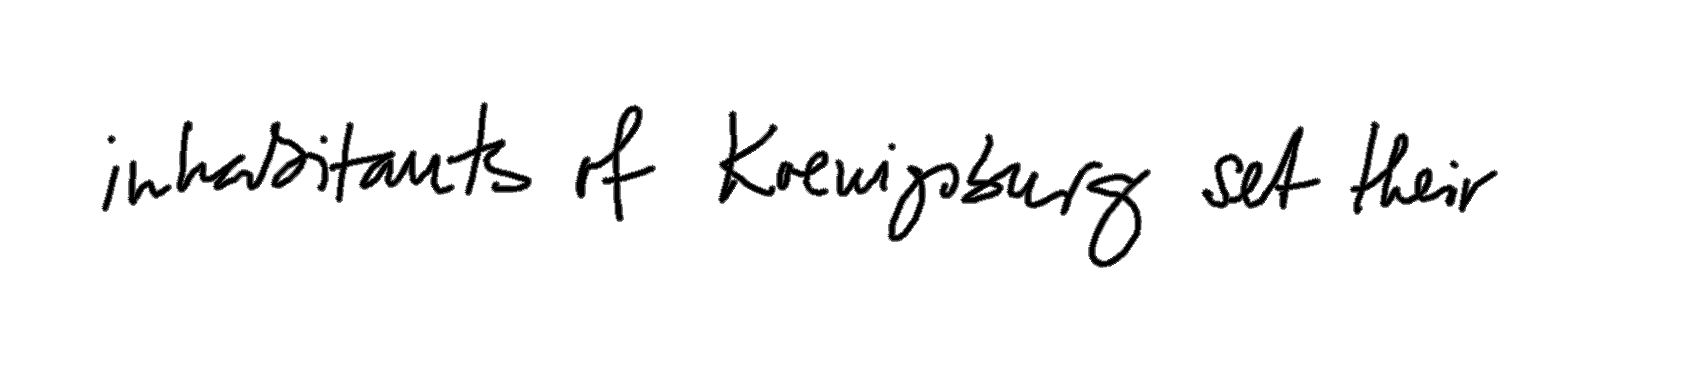 inhabitants of Koenigsburg set their